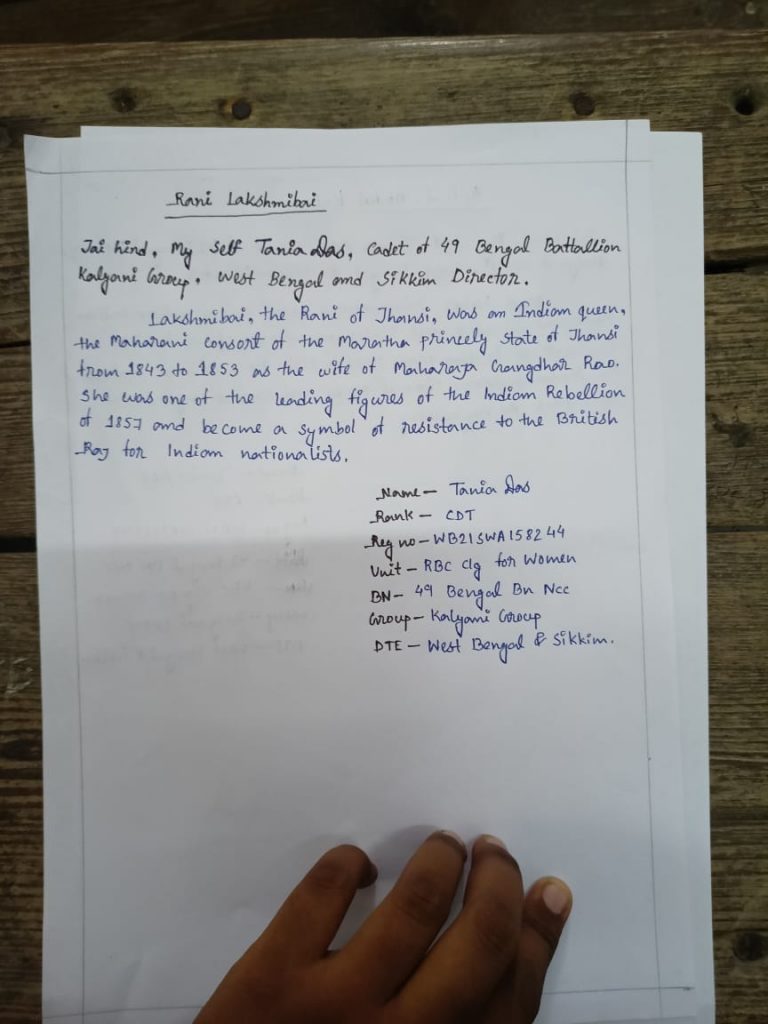 Rani Lakshmibai
Jai hind, My self Tania Das, Cadet of 49 Bengal Battallion
Kalyani Group, West Bengal and Sikkim Director.
Lakshmibai, the Rani of Jhansi, was an Indian queen,
the Maharani consort of the Maratha princely state of Jhansi
from 1843 to 1853 as the wife of Maharaja Gangdhar Rao.
She was one of the leading figures of the Indian Rebellion
of 1857 and become a symbol of resistance to the British
Raj for Indian nationalists.
Name - Tania Das
Rank - CDT
Reg no - WB21SWA158244
Unit - RBC clg for Women
BN - 49 Bengal Bn Ncc
Group - Kalyani Group
DTE - West Bengal & Sikkim.